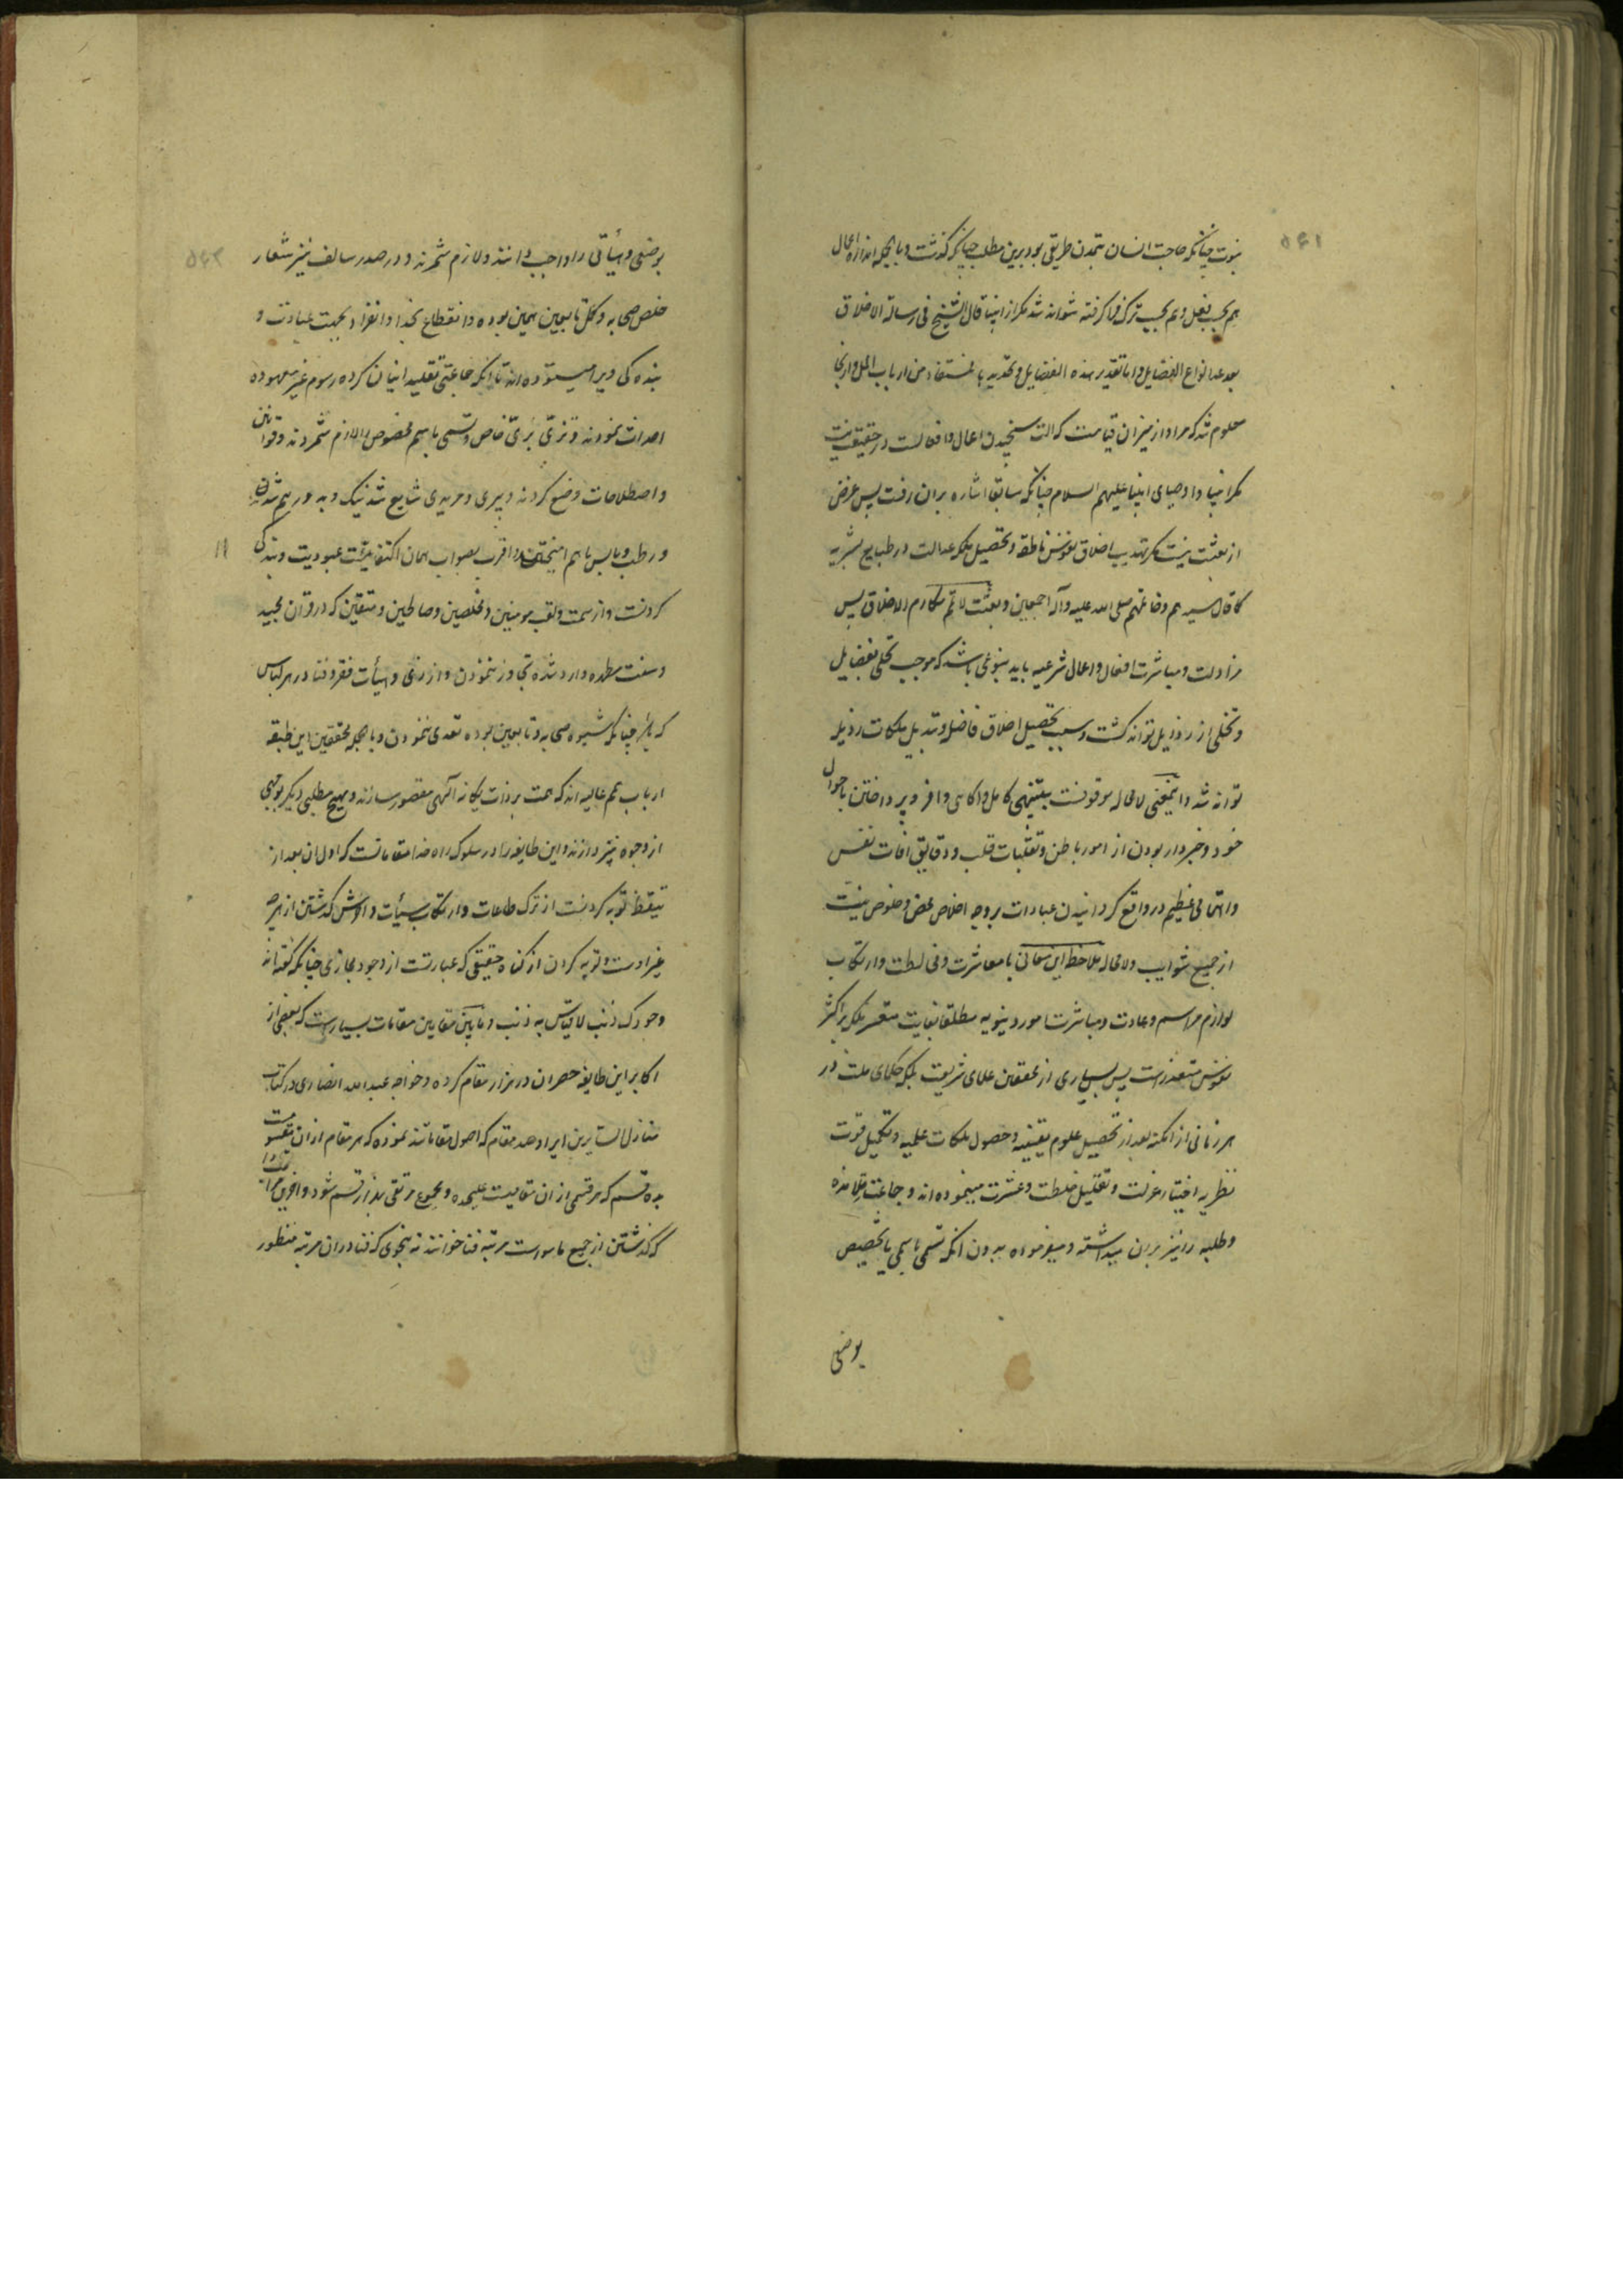 ۵۴۱
نبوت چنانکه حاجت انسان بتمدن طریقی بود برین مطلب چنانکه گذشت و بالجمله اندازه اعمال
هم بحسب فعل و هم بحسب ترک فرا گرفته نتواند شد مگر از انبیا قال الشیخ فی رسالة الاخلاق
بعد عد انواع الفضایل و اما تقدیر هذه الفضایل و تحدیدها فمستفاد من ارباب الملل و ازینجا
معلوم شد که مراد از میزان قیامت که الت سنجیدن اعمال و افعالست در حقیقت نیست
مگر انبیا و اوصیای انبیا علیهم السلام چنانکه سابقا اشاره بران رفت پس غرض
از بعثت نیست مگر تهذیب اخلاق نفوس ناطقه و تحصیل ملکه عدالت در طبایع بشریه
کما قال سیدهم و خاتمهم صلی الله علیه و آله اجمعین و بعثت لاتمم مکارم الاخلاق پس
مزاولت و مباشرت افعال و اعمال شرعیه باید بنوعی باشد که موجب تحلی بفضایل
و تخلی از رذایل تواند گشت و سبب تحصیل اخلاق فاضله و تبدیل ملکات رذیله
تواند شد و اینمعنی لامحاله موقوفست بتنبهی کامل و اکاهی وافر و پرداختن باحوال
خود و خبردار بودن از امور باطن و تقلبات قلب و دقایق افات نفس
و اهتمامی عظیم در واقع گردانیدن عبادات بر وجه اخلاص محض و خلوص نیت
از جمیع شوایب و لامحاله ملاحظه این معانی با معاشرت و مخالطت و ارتکاب
لوازم مراسم و عادت و مباشرت امور دنیویه مطلقا بغایت متعسر بلکه بر اکثر
نفوس متعذر است پس بسیاری از محققین علمای شریعت بلکه حکمای ملت در
هر زمانی از ازمنه بعد از تحصیل علوم یقینیه و حصول ملکات علمیه و تکمیل قوت
نظریه اختیار عزلت و تقلیل خلطت و عشرت مینموده اند و جماعت تلامذه
و طلبه را نیز بران میداشته و میفرموده بدون انکه تسمی باسمی یا تخصیص
بوضعی
۵۴۲
بوضعی و هیأتی را واجب دانند و لازم شمرند و در صدر سالف نیز شعار
خلص صحابه و کمل تابعین همین بوده و انقطاع بخدا و انفراد بجهت عبادت و
بنده کی ویرا میستوده اند تا انکه جماعتی تقلید ایشان کرده رسوم غیر معهوده
احداث نمودند و تزیّ بزیّ خاص و تسمی باسم مخصوص را لازم شمردند و قوانین
و اصطلاحات وضع کردند و پیری و مریدی شایع شد نیک و بد در هم شدند
و رطب و یابس باهم امیختند و اقرب بصواب همان اکتفا بسمت عبودیت و بندگی
کردنست و از سمت و لقب مومنین و مخلصین و صالحین و متقین که در قران مجید
و سنت مطهره وارد شده تجاوز ننمودن و از زی و هیأت فقر و فنا در هر لباس
که باشد چنانکه شیوه صحابه و تابعین بوده تعدی ننمودن و بالجمله محققین این طبقه
ارباب همم عالیه اند که همت بر ذات یکانه آلهی مقصور سازند و بهیچ مطلبی دیگر بوجهی
از وجوه نپردازند و این طایفه را در سلوک راه خدا مقاماتست که اول ان بعد از
تیقظ توبه کردنست از ترک طاعات و ارتکاب سیأت و اخرش گذشتن از هرچه
غیر اوست و توبه کردن از گناه حقیقی که عبارتست از وجود مجازی چنانکه گفته اند
وجودک ذنب لا یقاس به ذنب و مابین مقامین مقامات بسیار است که بعضی از
اکابر این طایفه حصر ان در هزار مقام کرده و خواجه عبد الله انصاری در کتاب
منازل السایرین ایراد صد مقام که اصول مقاماتند نموده که هر مقام از ان منقسم
بده قسم که هر قسمی از ان مقامیست علیحده و مجموع مرتقی بهزار قسم شود و اخرین مراتب
که گذشتن از جمیع ماسوا است مرتبه فنا خوانند نه بنحوی که فنا در ان مرتبه منظور